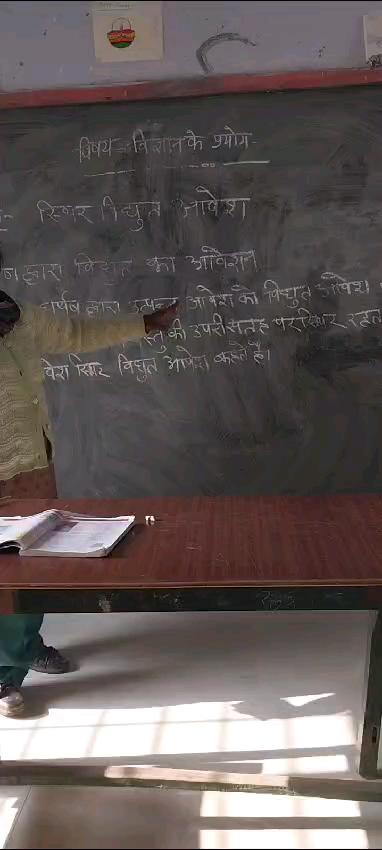 विषय - विज्ञान के प्रयोग
स्थिर विद्युत आवेश
द्वारा विद्युत का आवेशन
घर्षण द्वारा उत्पन्न आवेश को विद्युत आवेश
की उपरी सतह पर स्थिर रहता
स्थिर विद्युत आवेश कहते है।